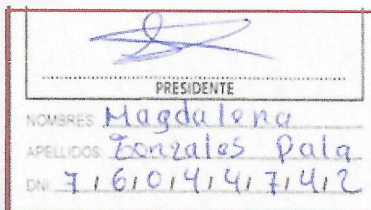 PRESIDENTE
NOMBRES Magdalena
APELLIDOS Gonzales Pala
DNI 7 6 0 4 4 7 4 2